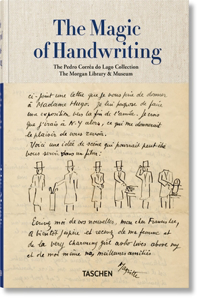 The Magic
of Handwriting
The Pedro Corrêa do Lago Collection
The Morgan Library & Museum
ci-joint une lettre que je vous prie de donner
à Madame Hugo. Je lui propose de faire
une exposition vers la fin de l'année. Je crois
que j'irai à N-Y alors, ce qui me donnerait
le plaisir de vous revoir.
Voici une idée de scène qui pourrait peut être
vous servir dans un
Ecrivez moi de vos nouvelles, mon cher
à bientôt j'espère et recevez de ma femme et
de la very charming girl who lives above my
et de moi même nos meilleures amitiés
Magritte
TASCHEN